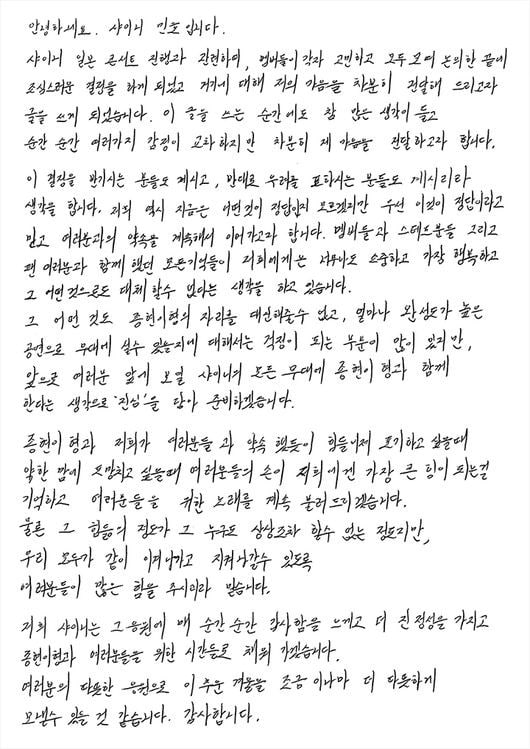 안녕하세요. 샤이니 민호입니다.
샤이니 일본 콘서트 진행과 관련하여, 멤버들이 각자 고민하고 모두 모여 논의한 끝에
조심스러운 결정을 하게 되었고 거기에 대해 저의 마음을 차분히 전달해 드리고자
글을 쓰게 되었습니다. 이 글을 쓰는 순간에도 참 많은 생각이 들고
순간 순간 여러가지 감정이 교차하지만 차분히 제 마음을 전달하고자 합니다.
이 결정을 반기시는 분들도 계시고, 반대로 우려를 표하시는 분들도 계시리라
생각을 합니다. 저희 역시 지금은 어떤것이 정답인지 모르겠지만 우선 이것이 정답이라고
믿고 여러분과의 약속을 계속해서 이어가고자 합니다. 멤버들과 스태프분들 그리고
팬 여러분과 함께 했던 모든기억들이 저희에게는 너무나도 소중하고 가장 행복하고
그 어떤 것으로도 대체 할수 없다는 생각을 하고 있습니다.
그 어떤 것도 종현이형의 자리를 대신해줄수 없고, 얼마나 완성도가 높은
공연으로 무대에 설수 있을지에 대해서는 걱정이 되는 부분이 많이 있지만,
앞으로 여러분 앞에 보일 샤이니의 모든 무대에 종현이형과 함께
한다는 생각으로 '진심'을 담아 준비하겠습니다.
종현이형과 저희가 여러분들과 약속 했듯이 힘들어서 포기하고 싶을때
약한 맘에 도망치고 싶을때 여러분들의 손이 저희에겐 가장 큰 힘이 되는걸
기억하고 여러분들을 위한 노래를 계속 불러드리겠습니다.
물론 그 힘듦의 정도가 그 누구도 상상조차 할수 없는 정도지만,
우리 모두가 같이 이겨나가고 지켜나갈수 있도록
여러분들이 많은 힘을 주시리라 믿습니다.
저희 샤이니는 그 응원에 매 순간 순간 감사함을 느끼고 더 진정성을 가지고
종현이형과 여러분들을 위한 시간들로 채워 가겠습니다.
여러분의 따뜻한 응원으로 이 추운 겨울을 조금 이나마 더 따듯하게
보낼수 있을 것 같습니다. 감사합니다.